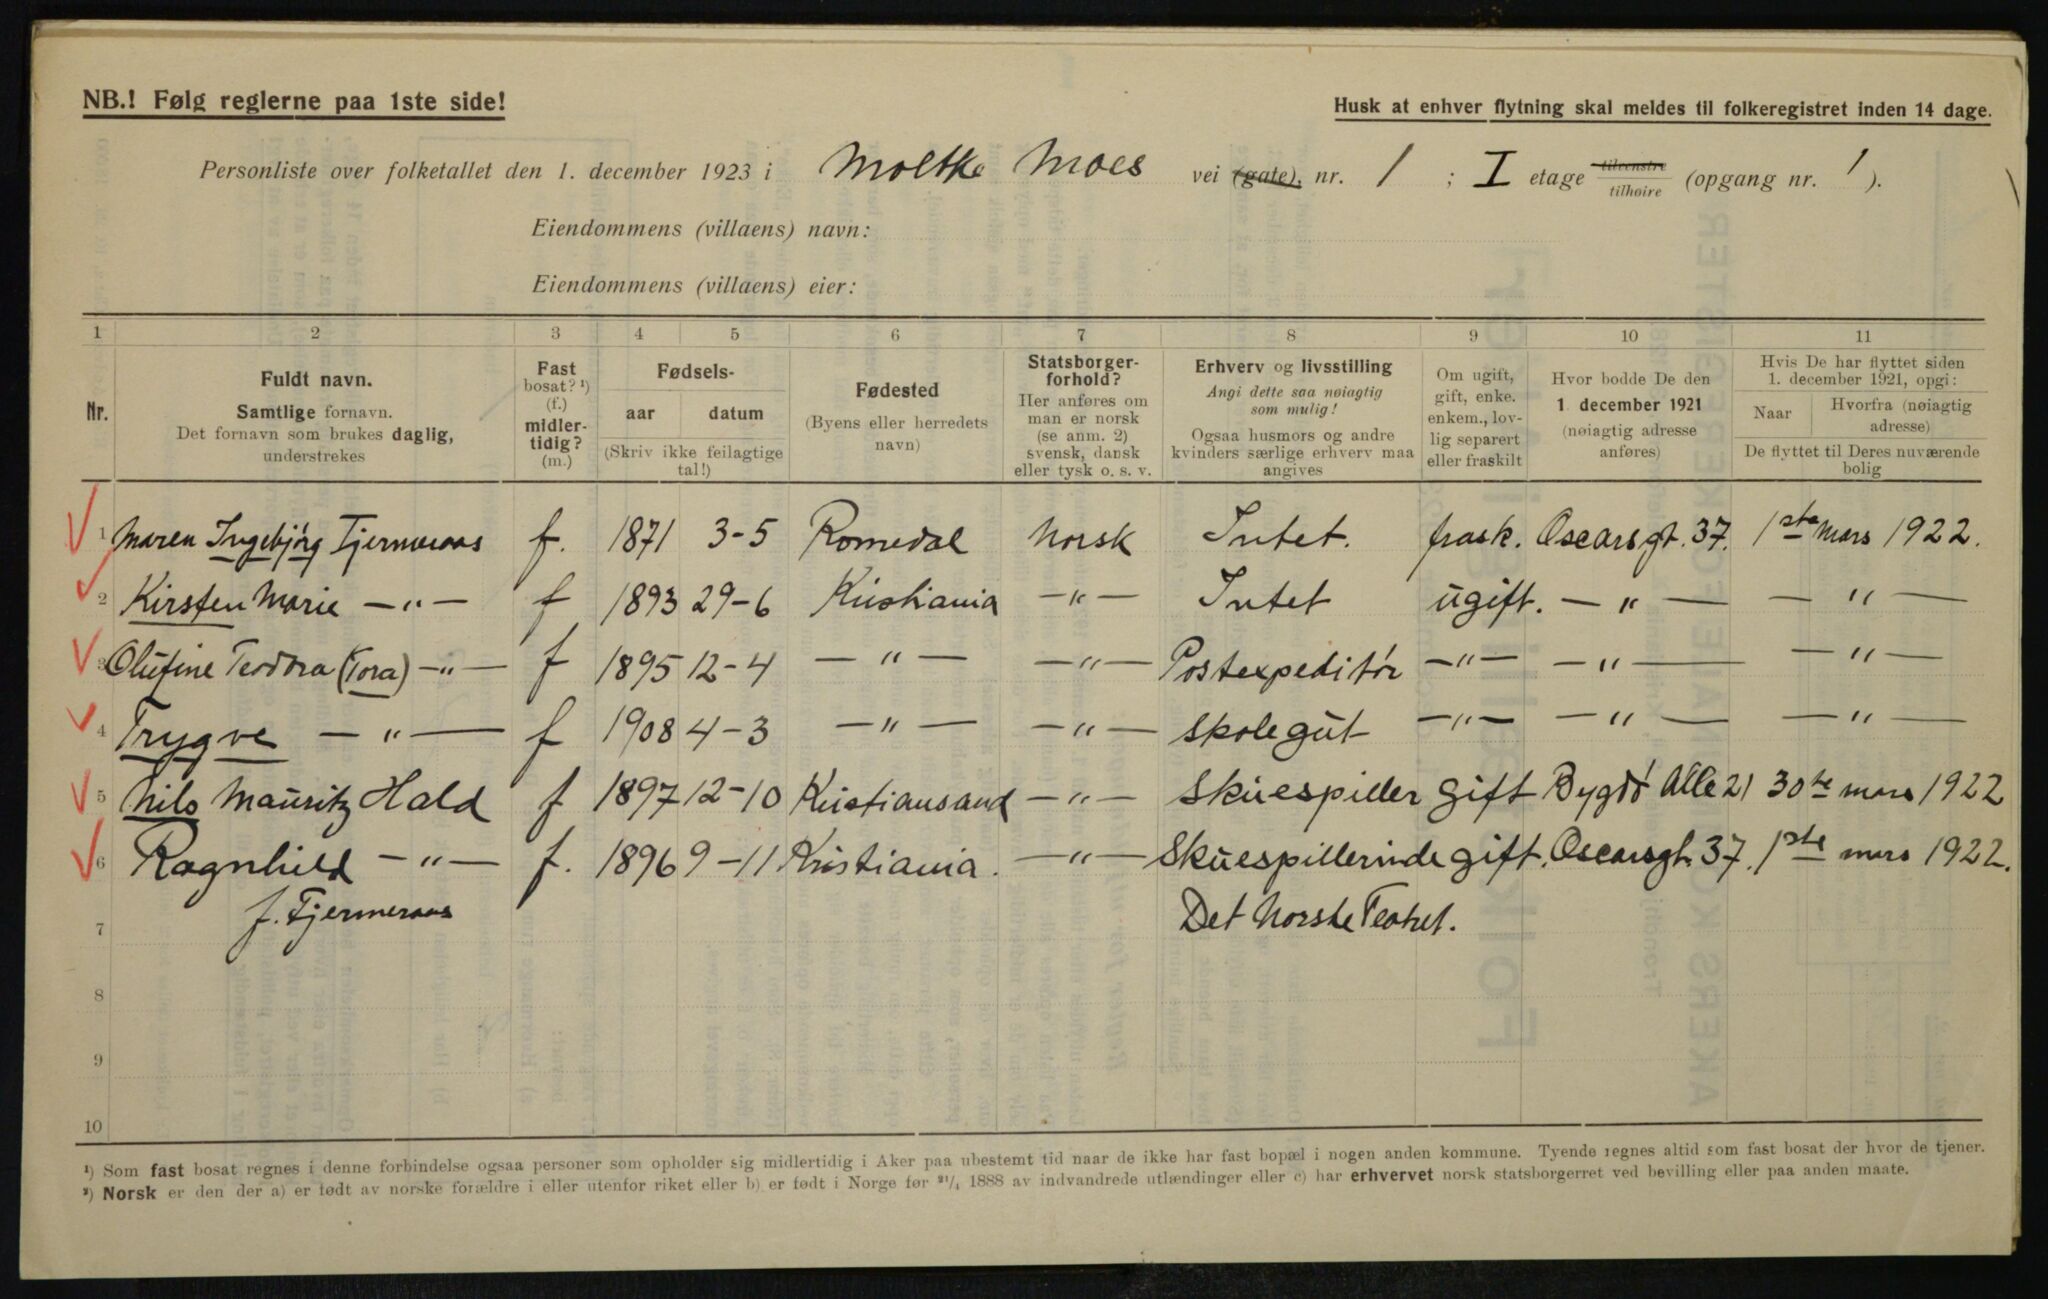 NB.! Følg reglerne paa 1ste side!
Husk at enhver flytning skal meldes til folkeregistret inden 14 dage.
Personliste over folketallet den 1. december 1923 i Moltke Moes vei (gate), nr. 1 ; I etage tilvenstre tilhøire (opgang nr. 1).
Eiendommens (villaens) navn:
Eiendommens (villaens) eier:
1 2 3 4 5 6 7 8 9 10 11
Nr.
Fuldt navn.
Samtlige fornavn.
Det fornavn som brukes daglig,
understrekes
Fast
bosat? ¹)
(f.)
midler-
tidig?
(m.)
Fødsels-
aar datum
(Skriv ikke feilagtige
tal!)
Fødested
(Byens eller herredets
navn)
Statsborger-
forhold?
Her anføres om
man er norsk
(se anm. 2)
svensk, dansk
eller tysk o. s. v.
Erhverv og livsstilling
Angi dette saa nøiagtig
som mulig!
Ogsaa husmors og andre
kvinders særlige erhverv maa
angives
Om ugift,
gift, enke.
enkem., lov-
lig separert
eller fraskilt
Hvor bodde De den
1. december 1921
(nøiagtig adresse
anføres)
Hvis De har flyttet siden
1. december 1921, opgi:
Naar
Hvorfra (nøiagtig
adresse)
De flyttet til Deres nuværende
bolig
1 Maren Ingebjørg Tjernæraas f. 1871 3-5 Romedal Norsk Intet. frask. Oscarsgt. 37. 1ste mars 1922.
2 Kirsten Marie —"— f 1893 29-6 Kristiania —"— Intet ugift. —"— —"—
3 Olufine Teodora (Tora) —"— f 1895 12-4 —"— —"— Postexpeditør —"— —"— —"—
4 Trygve —"— f 1908 4-3 —"— —"— Skolegut —"— —"— —"—
5 Nils Mauritz Hald f 1897 12-10 Kristiansand —"— Skuespiller gift Bygdø Alle 21 30te mars 1922
6 Ragnhild —"— f. 1896 9-11 Kristiania. —"— Skuespillerinde gift. Oscarsgt. 37. 1ste mars 1922.
7 f. Tjernæraas Det Norske Teatret.
8
9
10
¹) Som fast bosat regnes i denne forbindelse ogsaa personer som opholder sig midlertidig i Aker paa ubestemt tid naar de ikke har fast bopæl i nogen anden kommune. Tyende regnes altid som fast bosat der hvor de tjener.
²) Norsk er den der a) er født av norske forældre i eller utenfor riket eller b) er født i Norge før ²¹/₄ 1888 av indvandrede utlændinger eller c) har erhvervet norsk statsborgerret ved bevilling eller paa anden maate.